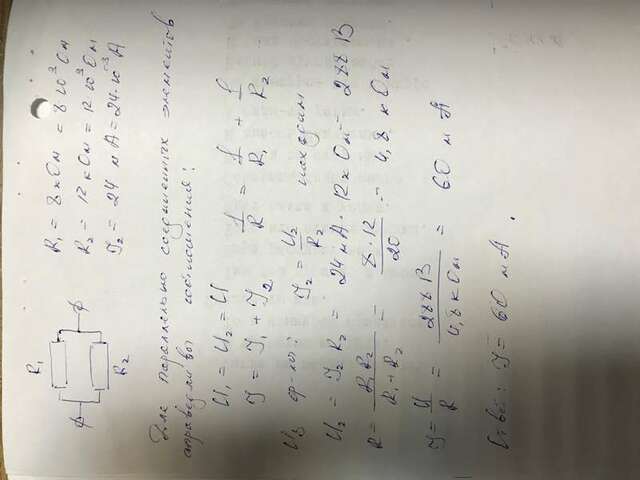 R₁
R₂
R₁ = 8 кОм = 8·10³ Ом
R₂ = 12 кОм = 12·10³ Ом
I₂ = 24 мА = 24·10⁻³ А
Для параллельно соединенных элементов
справедливы соотношения:
U₁ = U₂ = U
I = I₁ + I₂
1/R = 1/R₁ + 1/R₂
Из ф-лы: I₂ = U₂/R₂ находим
U₂ = I₂R₂ = 24 мА · 12 кОм = 288 В
R = R₁R₂/(R₁+R₂) = 8·12/20 = 4,8 кОм
I = U/R = 288 В/4,8 кОм = 60 мА
Ответ: I = 60 мА.